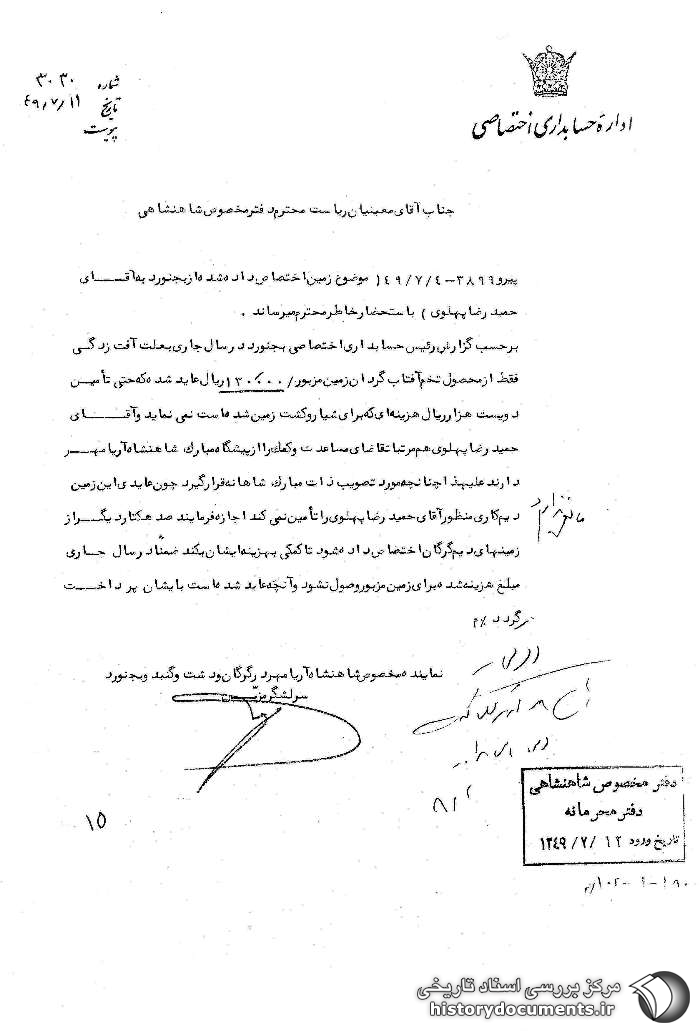 اداره حسابداری اختصاصی
شماره ۳۰۳۰
تاریخ ۴۹/۷/۱۱
پیوست
جناب آقای معینیان ریاست محترم دفتر مخصوص شاهنشاهی
پیرو ۳۸۹۹-۴۹/۷/۴ ( موضوع زمین اختصاص داده شده از بجنورد به آقای
حمید رضا پهلوی ) باستحضار خاطر محترم میرساند .
برحسب گزارش رئیس حسابداری اختصاصی بجنورد در سال جاری بعلت آفت زدگی
فقط از محصول تخم آفتاب گردان زمین مزبور /۱۳۰۰۰۰ ریال عاید شده که حتی تأمین
دویست هزار ریال هزینه ای که برای شیار و کشت زمین شده است نمی نماید و آقای
حمید رضا پهلوی هم مرتبا تقاضای مساعدت و کمک را از پیشگاه مبارک شاهنشاه آریامهر
دارند علیهذا چنانچه مورد تصویب ذات مبارک شاهانه قرار گیرد چون عایدی این زمین
دیم کاری منظور آقای حمید رضا پهلوی را تأمین نمی کند اجازه فرمایند صد هکتار دیگر از
زمینهای دیم گرگان اختصاص داده شود تا کمکی بهزینه ایشان بکند ضمناً در سال جاری
مبلغ هزینه شده برای زمین مزبور وصول نشود و آنچه عاید شده است بایشان پرداخت
گردد
مانعی ندارد
نماینده مخصوص شاهنشاه آریامهر در گرگان و دشت و گنبد و بجنورد
سرلشگر مزین
۱۵
دفتر مخصوص شاهنشاهی
دفتر محرمانه
تاریخ ورود ۱۳۴۹/۷/۱۲
مرکز بررسی اسناد تاریخی
historydocuments.ir